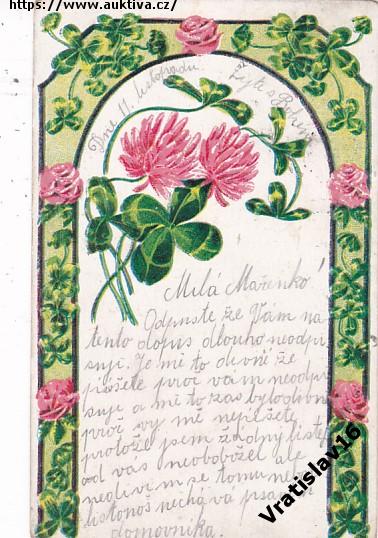 https://www.auktiva.cz/
Dne 11. listopadu.
Milá Mařenko!
Odpuste že Vám na
tento dopis dlouho neodpi
suji. Je mi to divné že
píšete proč vám neodpi
suji a mi to zas bylo divné
proč vy mě nepíšete
protože jsem žádný lístek
od vás neobdržel ale
nedivím se tomu neboť
listonoš nechá vá psaní
domovníka.
Vratislav16